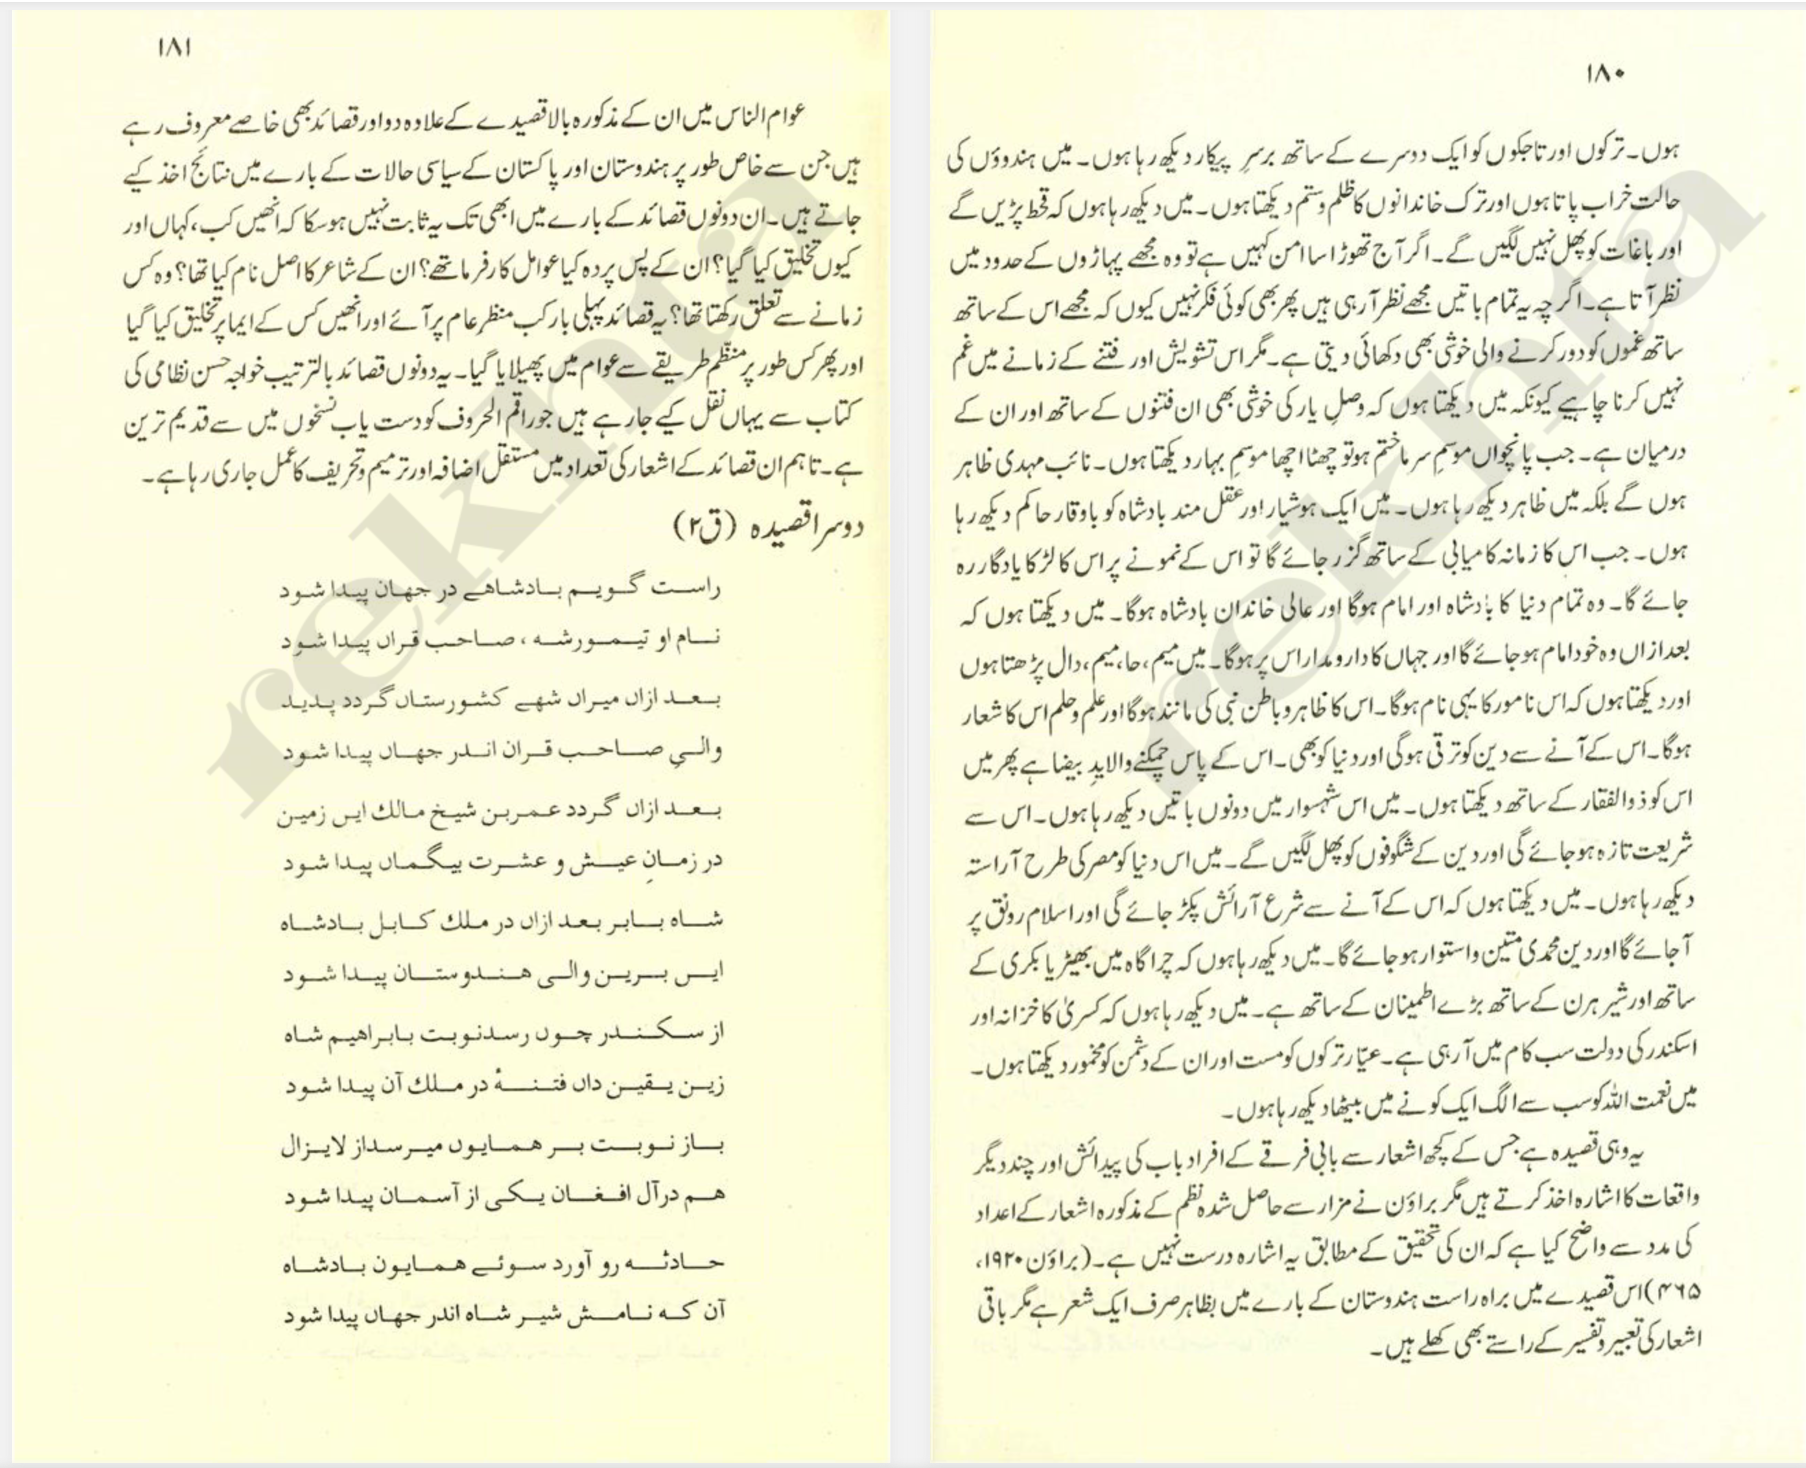 ۱۸۰
ہوں۔ ترکوں اور تاجکوں کو ایک دوسرے کے ساتھ برسرِ پیکار دیکھ رہا ہوں۔ میں ہندوؤں کی
حالت خراب پاتا ہوں اور ترک خاندانوں کا ظلم و ستم دیکھتا ہوں۔ میں دیکھ رہا ہوں کہ قحط پڑیں گے
اور باغات کو پھل نہیں لگیں گے۔ اگر آج تھوڑا سا امن کہیں ہے تو وہ مجھے پہاڑوں کے حدود میں
نظر آتا ہے۔ اگرچہ یہ تمام باتیں مجھے نظر آ رہی ہیں پھر بھی کوئی فکر نہیں کیوں کہ مجھے اس کے ساتھ
ساتھ غموں کو دور کرنے والی خوشی بھی دکھائی دیتی ہے۔ مگر اس تشویش اور فتنے کے زمانے میں غم
نہیں کرنا چاہیے کیونکہ میں دیکھتا ہوں کہ وصلِ یار کی خوشی بھی ان فتنوں کے ساتھ اور ان کے
درمیان ہے۔ جب پانچواں موسمِ سرما ختم ہو تو چھٹا اچھا موسمِ بہار دیکھتا ہوں۔ نائب مہدی ظاہر
ہوں گے بلکہ میں ظاہر دیکھ رہا ہوں۔ میں ایک ہوشیار اور عقل مند بادشاہ کو باوقار حاکم دیکھ رہا
ہوں۔ جب اس کا زمانہ کامیابی کے ساتھ گزر جائے گا تو اس کے نمونے پر اس کا لڑکا یادگار رہ
جائے گا۔ وہ تمام دنیا کا بادشاہ اور امام ہوگا اور عالی خاندان بادشاہ ہوگا۔ میں دیکھتا ہوں کہ
بعد ازاں وہ خود امام ہو جائے گا اور جہاں کا دارومدار اس پر ہوگا۔ میں میم، حا، میم، دال پڑھتا ہوں
اور دیکھتا ہوں کہ اس نامور کا یہی نام ہوگا۔ اس کا ظاہر و باطن نبی کی مانند ہوگا اور علم و حلم اس کا شعار
ہوگا۔ اس کے آنے سے دین کو ترقی ہوگی اور دنیا کو بھی۔ اس کے پاس چمکنے والا یدِ بیضا ہے پھر میں
اس کو ذوالفقار کے ساتھ دیکھتا ہوں۔ میں اس شہسوار میں دونوں باتیں دیکھ رہا ہوں۔ اس سے
شریعت تازہ ہو جائے گی اور دین کے شگوفوں کو پھل لگیں گے۔ میں اس دنیا کو مصر کی طرح آراستہ
دیکھ رہا ہوں۔ میں دیکھتا ہوں کہ اس کے آنے سے شرع آرائش پکڑ جائے گی اور اسلام رونق پر
آ جائے گا اور دین محمدی متین و استوار ہو جائے گا۔ میں دیکھ رہا ہوں کہ چراگاہ میں بھیڑیا بکری کے
ساتھ اور شیر ہرن کے ساتھ بڑے اطمینان کے ساتھ ہے۔ میں دیکھ رہا ہوں کہ کسریٰ کا خزانہ اور
اسکندر کی دولت سب کام میں آ رہی ہے۔ عیّار ترکوں کو مست اور ان کے دشمن کو مخمور دیکھتا ہوں۔
میں نعمت اللہ کو سب سے الگ ایک کونے میں بیٹھا دیکھ رہا ہوں۔
یہ وہی قصیدہ ہے جس کے کچھ اشعار سے بابی فرقے کے افراد باب کی پیدائش اور چند دیگر
واقعات کا اشارہ اخذ کرتے ہیں مگر براؤن نے مزار سے حاصل شدہ نظم کے مذکورہ اشعار کے اعداد
کی مدد سے واضح کیا ہے کہ ان کی تحقیق کے مطابق یہ اشارہ درست نہیں ہے۔ (براؤن ۱۹۲۰،
۴۶۵) اس قصیدے میں براہ راست ہندوستان کے بارے میں بظاہر صرف ایک شعر ہے مگر باقی
اشعار کی تعبیر و تفسیر کے راستے بھی کھلے ہیں۔
۱۸۱
عوام الناس میں ان کے مذکورہ بالا قصیدے کے علاوہ دو اور قصائد بھی خاصے معروف رہے
ہیں جن سے خاص طور پر ہندوستان اور پاکستان کے سیاسی حالات کے بارے میں نتائج اخذ کیے
جاتے ہیں۔ ان دونوں قصائد کے بارے میں ابھی تک یہ ثابت نہیں ہو سکا کہ انھیں کب، کہاں اور
کیوں تخلیق کیا گیا؟ ان کے پس پردہ کیا عوامل کارفرما تھے؟ ان کے شاعر کا اصل نام کیا تھا؟ وہ کس
زمانے سے تعلق رکھتا تھا؟ یہ قصائد پہلی بار کب منظر عام پر آئے اور انھیں کس کے ایما پر تخلیق کیا گیا
اور پھر کس طور پر منظّم طریقے سے عوام میں پھیلایا گیا۔ یہ دونوں قصائد بالترتیب خواجہ حسن نظامی کی
کتاب سے یہاں نقل کیے جا رہے ہیں جو راقم الحروف کو دست یاب نسخوں میں سے قدیم ترین
ہے۔ تاہم ان قصائد کے اشعار کی تعداد میں مستقل اضافہ اور ترمیم و تحریف کا عمل جاری رہا ہے۔
دوسرا قصیدہ (ق۲)
راست گویم بادشاہے در جہان پیدا شود
نام او تیمورشہ، صاحب قراں پیدا شود
بعد ازاں میراں شہے کشورستاں گردد پدید
والیِ صاحب قران اندر جہاں پیدا شود
بعد ازاں گردد عمر بن شیخ مالك ایں زمین
در زمانِ عیش و عشرت بیگماں پیدا شود
شاہ بابر بعد ازاں در ملك کابل بادشاہ
ایں بریں والی ہندوستان پیدا شود
از سکندر چوں رسد نوبت بابراہیم شاہ
زیں یقیں داں فتنۂ در ملك آن پیدا شود
باز نوبت بر ہمایوں میرسد از لایزال
ہم درآں افغان یکی از آسمان پیدا شود
حادثہ رو آورد سوئے ہمایون بادشاہ
آن کہ نامش شیر شاہ اندر جہاں پیدا شود
rekhta
rekhta